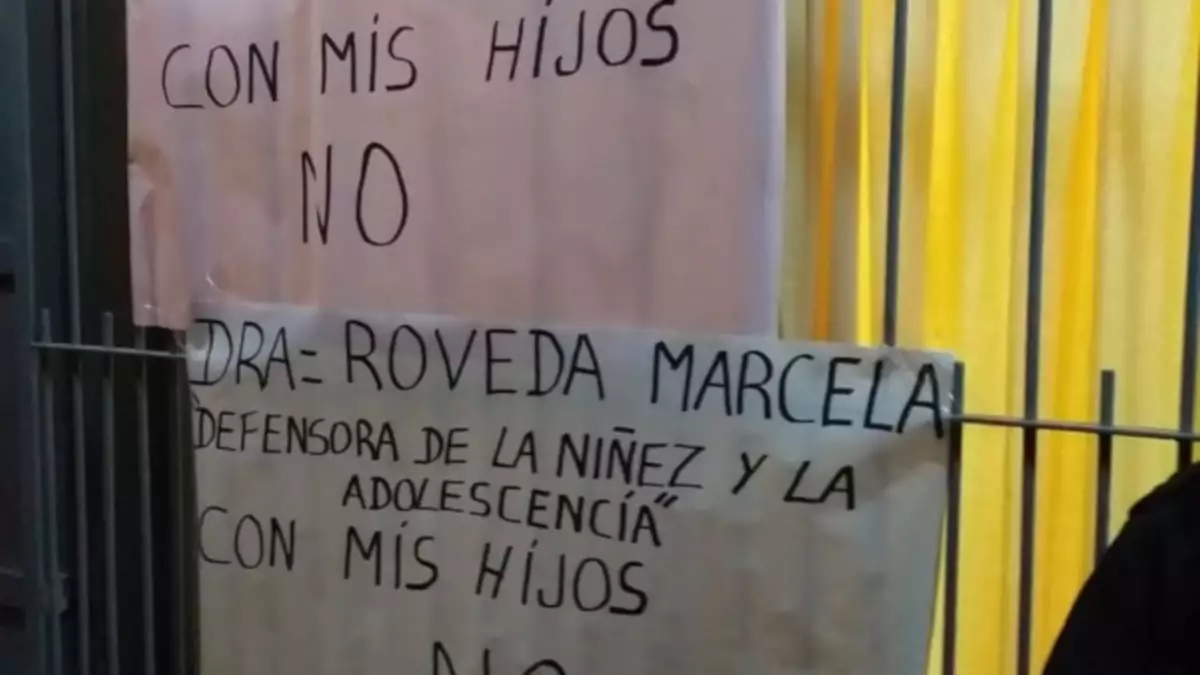 CON MIS HÍJOS
NO
DRA= ROVEDA MARCELA
DEFENSORA DE LA NIÑEZ Y LA
ADOLESCENCÍA"
CON MIS HÍJOS
NO